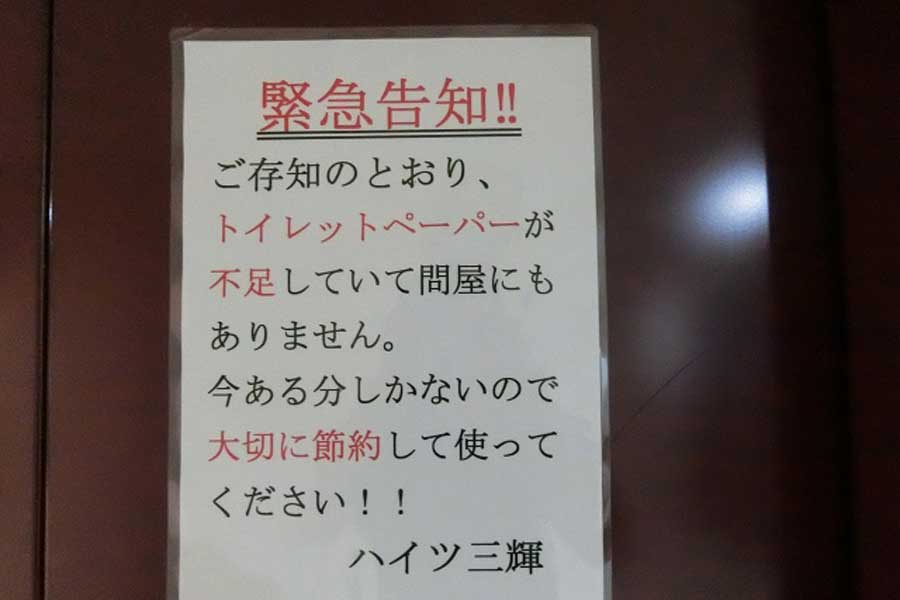 緊急告知!!
ご存知のとおり、
トイレットペーパーが
不足していて問屋にも
ありません。
今ある分しかないので
大切に節約して使って
ください！！
ハイツ三輝